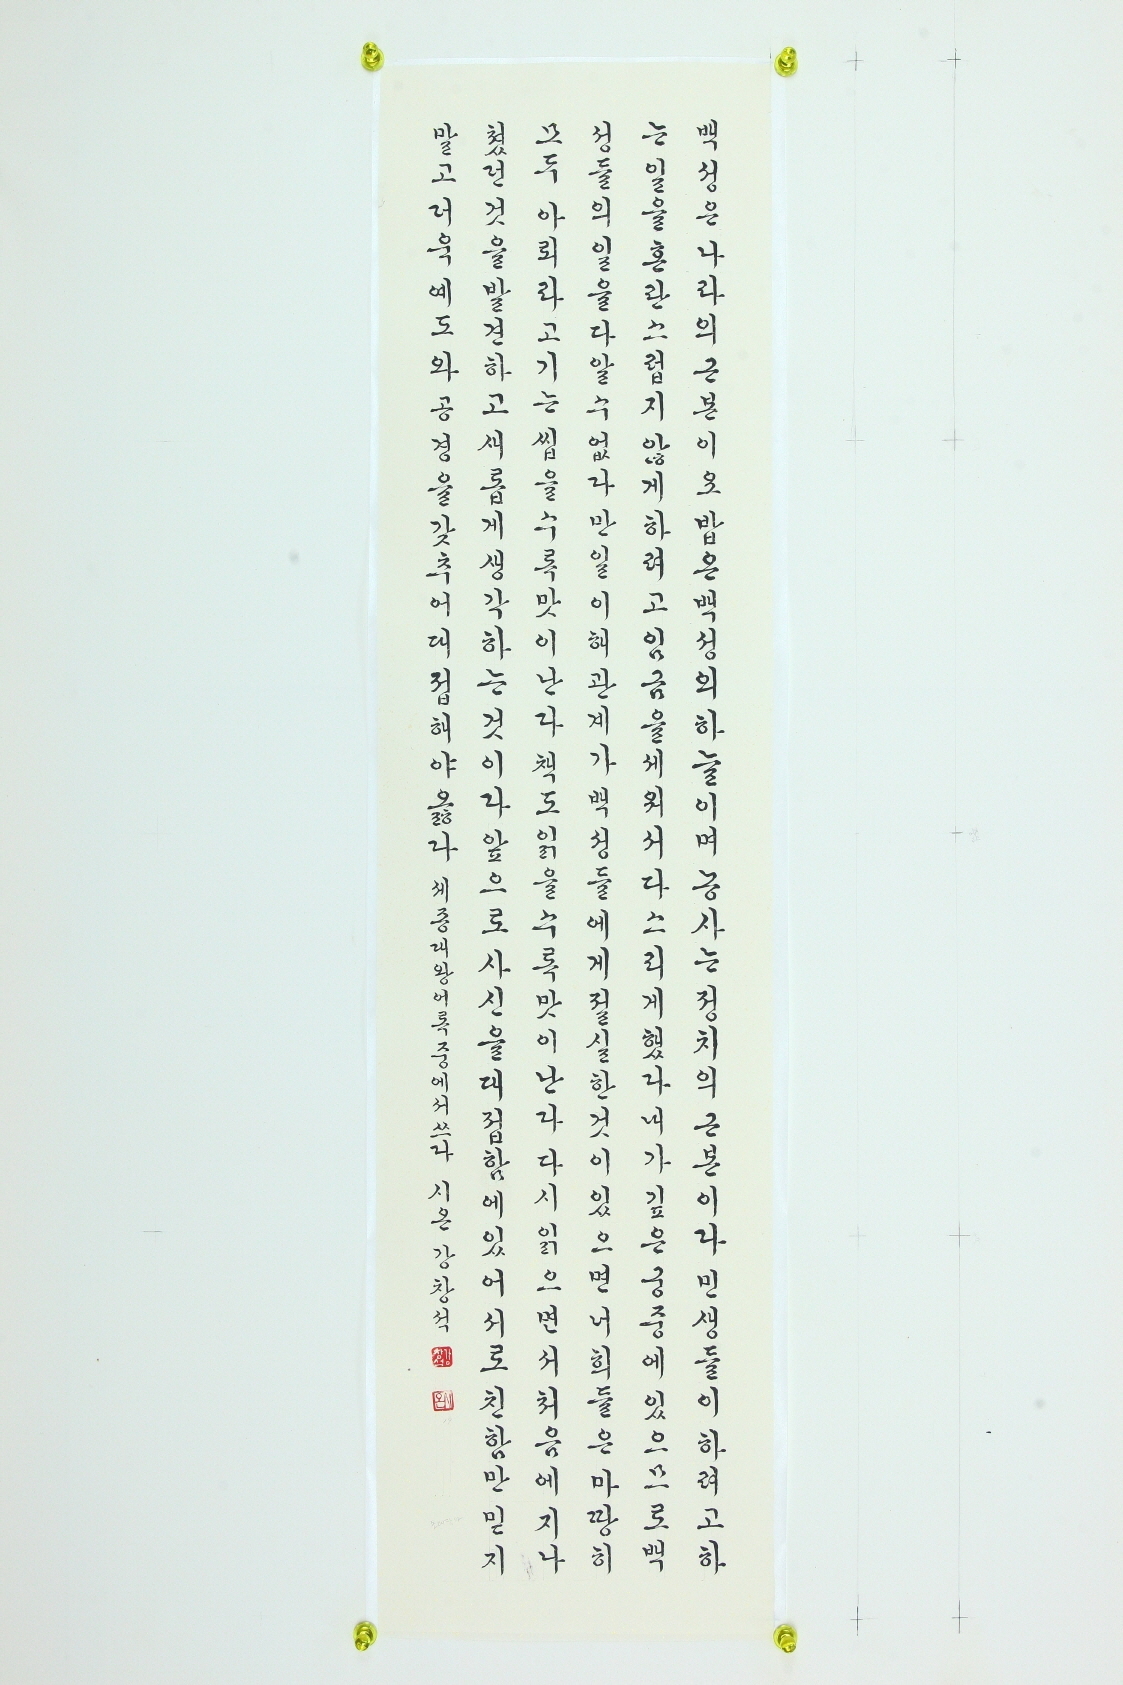 백성은나라의근본이오밥은백성의하늘이며농사는정치의근본이다민생들이하려고하
는일을혼란스럽지않게하려고임금을세워서다스리게했다내가깊은궁중에있으므로백
성들의일을다알수없다만일이해관계가백성들에게절실한것이있으면너희들은마땅히
모두아뢰라고기는씹을수록맛이난다책도읽을수록맛이난다다시읽으면서처음에지나
쳤던것을발견하고새롭게생각하는것이다앞으로사신을대접함에있어서로친함만믿지
말고더욱예도와공경을갖추어대접해야옳다 세종대왕어록중에서쓰다 시온 강창석